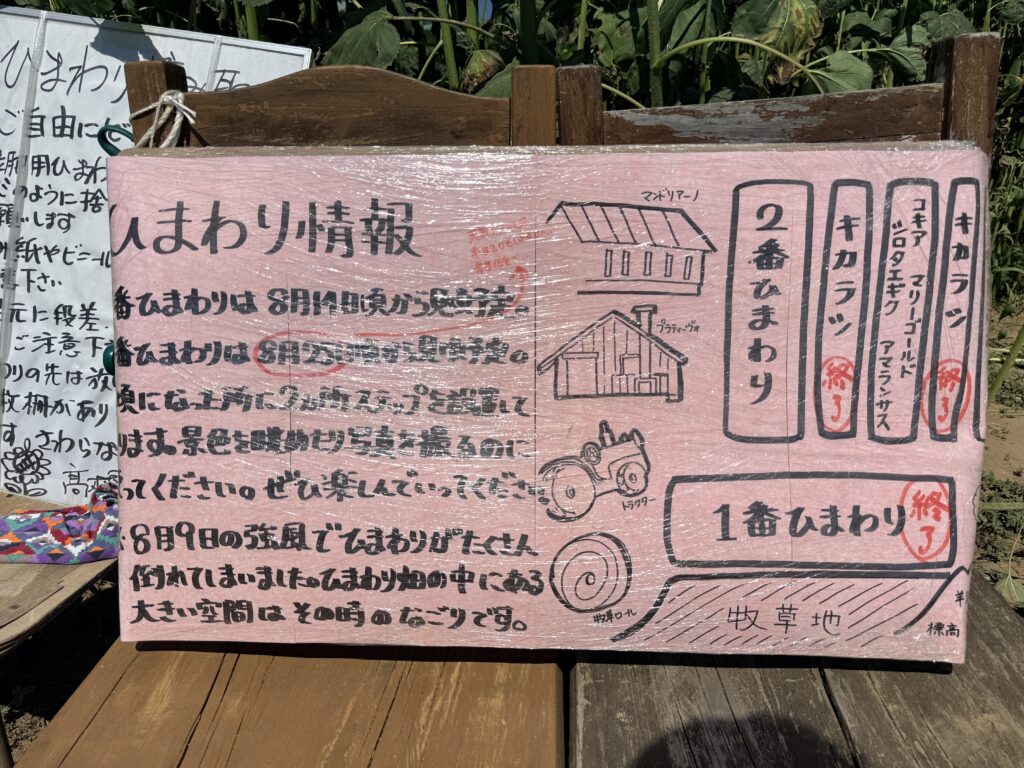 ひまわり
ご自由に
用ひまわ
のように捨
願いします
紙やビニール
下さい
元に段差
ご注意下
りの先は放
牧柵があり
す さわらな
ひまわり情報
番ひまわりは 8月14日頃から見頃予定。
番ひまわりは 8月25日頃から見頃予定。
頃になった所に2か所ステップを設置して
ります。景色を眺めたり写真を撮るのに
ってください。ぜひ楽しんでいってください
8月9日の強風でひまわりがたくさん
倒れてしまいました。ひまわり畑の中にある
大きい空間はその時のなごりです。
マンドリアーノ
プラティーヴォ
トラクター
牧草ロール
2番ひまわり
キカラシ
終了
コキア マリーゴールド
シロタエギク アマランサス
キカラシ
終了
1番ひまわり
終了
牧草地
標高